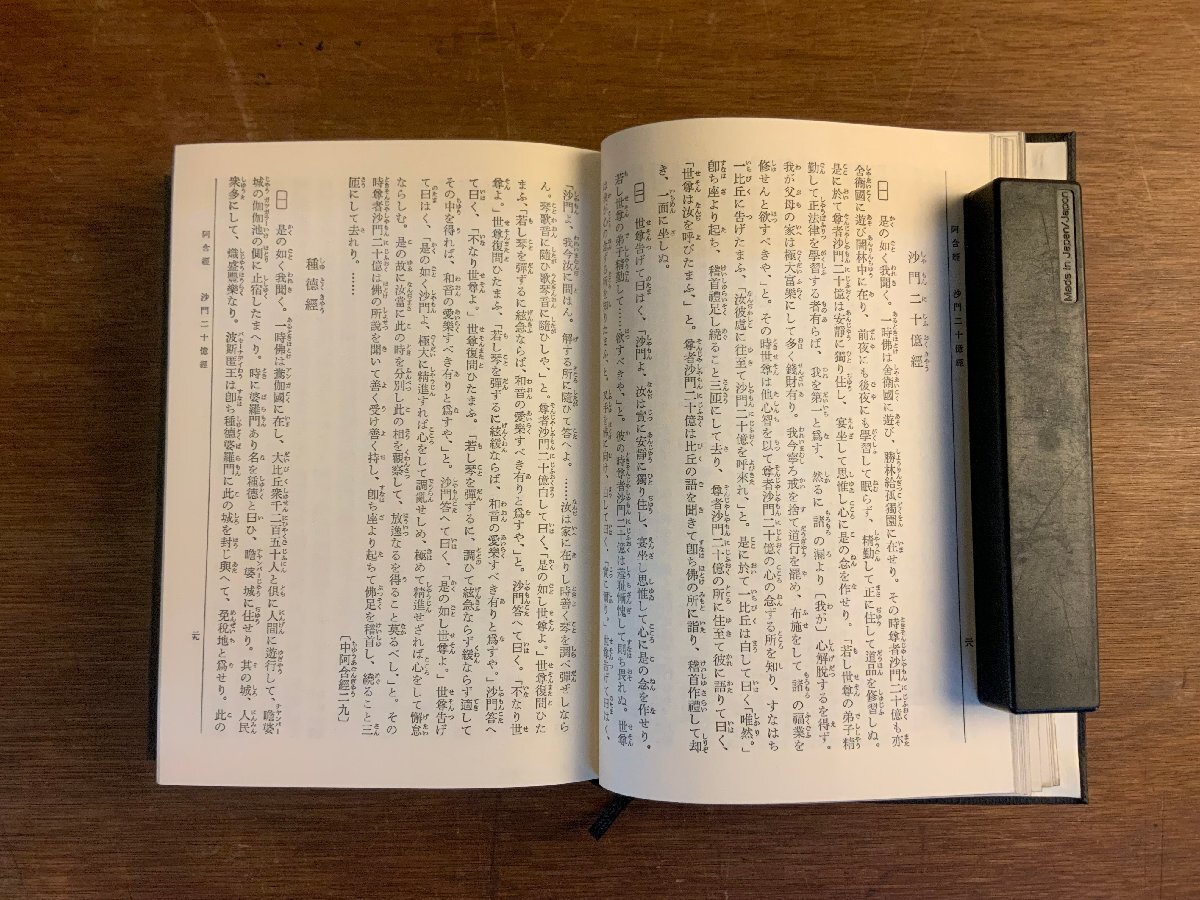 阿含經 沙門二十億經
沙門二十億經
一 是の如く我聞く。一時佛は舍衞國に遊び、勝林給孤獨園に在せり。その時尊者沙門二十億も亦
舍衞國に遊び闇林中に在り、前夜にも後夜にも學習して眠らず、精勤して正に住して道品を修習しぬ。
是に於て尊者沙門二十億は安靜に獨り住し、宴坐して思惟し心に是の念を作せり。「若し世尊の弟子精
勤して正法律を學習する者有らば、我を第一と爲す。然るに諸の漏より〔我が〕心解脱するを得ず。
我が父母の家は極大富樂にして多く錢財有り。我今寧ろ戒を捨て道行を罷め、布施をして諸の福業を
修せんと欲すべきや、」と。その時世尊は他心智を以て尊者沙門二十億の心の念ずる所を知り、すなはち
一比丘に告げたまふ、「汝彼處に往至て沙門二十億を呼來れ、」と。是に於て一比丘は白して曰く「唯然。」
卽ち座より起ち、稽首禮足し繞ること三匝にして去り、尊者沙門二十億の所に住至て彼に語りて曰く、
「世尊は汝を呼びたまふ、」と。尊者沙門二十億は比丘の語を聞きて卽ち佛の所に詣り、稽首作禮して却
き、一面に坐しぬ。
二 世尊告げて曰はく、「沙門よ、汝は實に安靜に獨り住し、宴坐し思惟して心に是の念を作せり。
若し世尊の弟子精勤して……欲すべきや、」と。彼の時尊者沙門二十億は羞恥慚愧して則ち畏れぬ。世尊
「沙門よ、我今汝に問はん。解する所に隨ひて答へよ。……汝は家に在りし時善く琴を調べ彈ぜしなら
ん。琴歌音に隨ひ歌琴音に隨ひしや、」と。尊者沙門二十億白して曰く、「是の如し世尊よ。」世尊復問ひた
まふ、「若し琴を彈ずるに絃急ならば、和音の愛樂すべき有りと爲すや、」と。沙門答へて曰く。「不なり世
尊よ。」世尊復問ひたまふ、「若し琴を彈ずるに絃緩ならば、和音の愛樂すべき有りと爲すや。」沙門答へ
て曰く、「不なり世尊よ。」世尊復問ひたまふ。「若し琴を彈ずるに、調ひて絃急ならず緩ならず適して
その中を得れば、和音の愛樂すべき有りと爲すや、」と。沙門答へて曰く、「是の如し世尊よ。」世尊告げ
て曰はく、「是の如く沙門よ、極大に精進すれば心をして調亂せしめ、極めて精進せざれば心をして懈怠
ならしむ。是の故に汝當に此の時を分別し此の相を觀察して、放逸なるを得ること莫るべし、」と。その
時尊者沙門二十億は佛の所説を聞いて善く受け善く持し、卽ち座より起ちて佛足を稽首し、繞ること三
匝にして去れり。……
〔中阿含經二九〕
種德經
一 是の如く我聞く。一時佛は鴦伽國に在し、大比丘衆千二百五十人と倶に人間に遊行して、瞻婆
城の伽伽池の閒に止宿したまへり。時に婆羅門あり名を種德と曰ひ、瞻婆城に住せり。其の城人民
衆多にして、熾盛興樂なり。波斯匿王は卽ち種德婆羅門に此の城を封じ與へて、免稅地と爲せり。此の
阿含經 沙門二十億經
Made in Japan/Japon